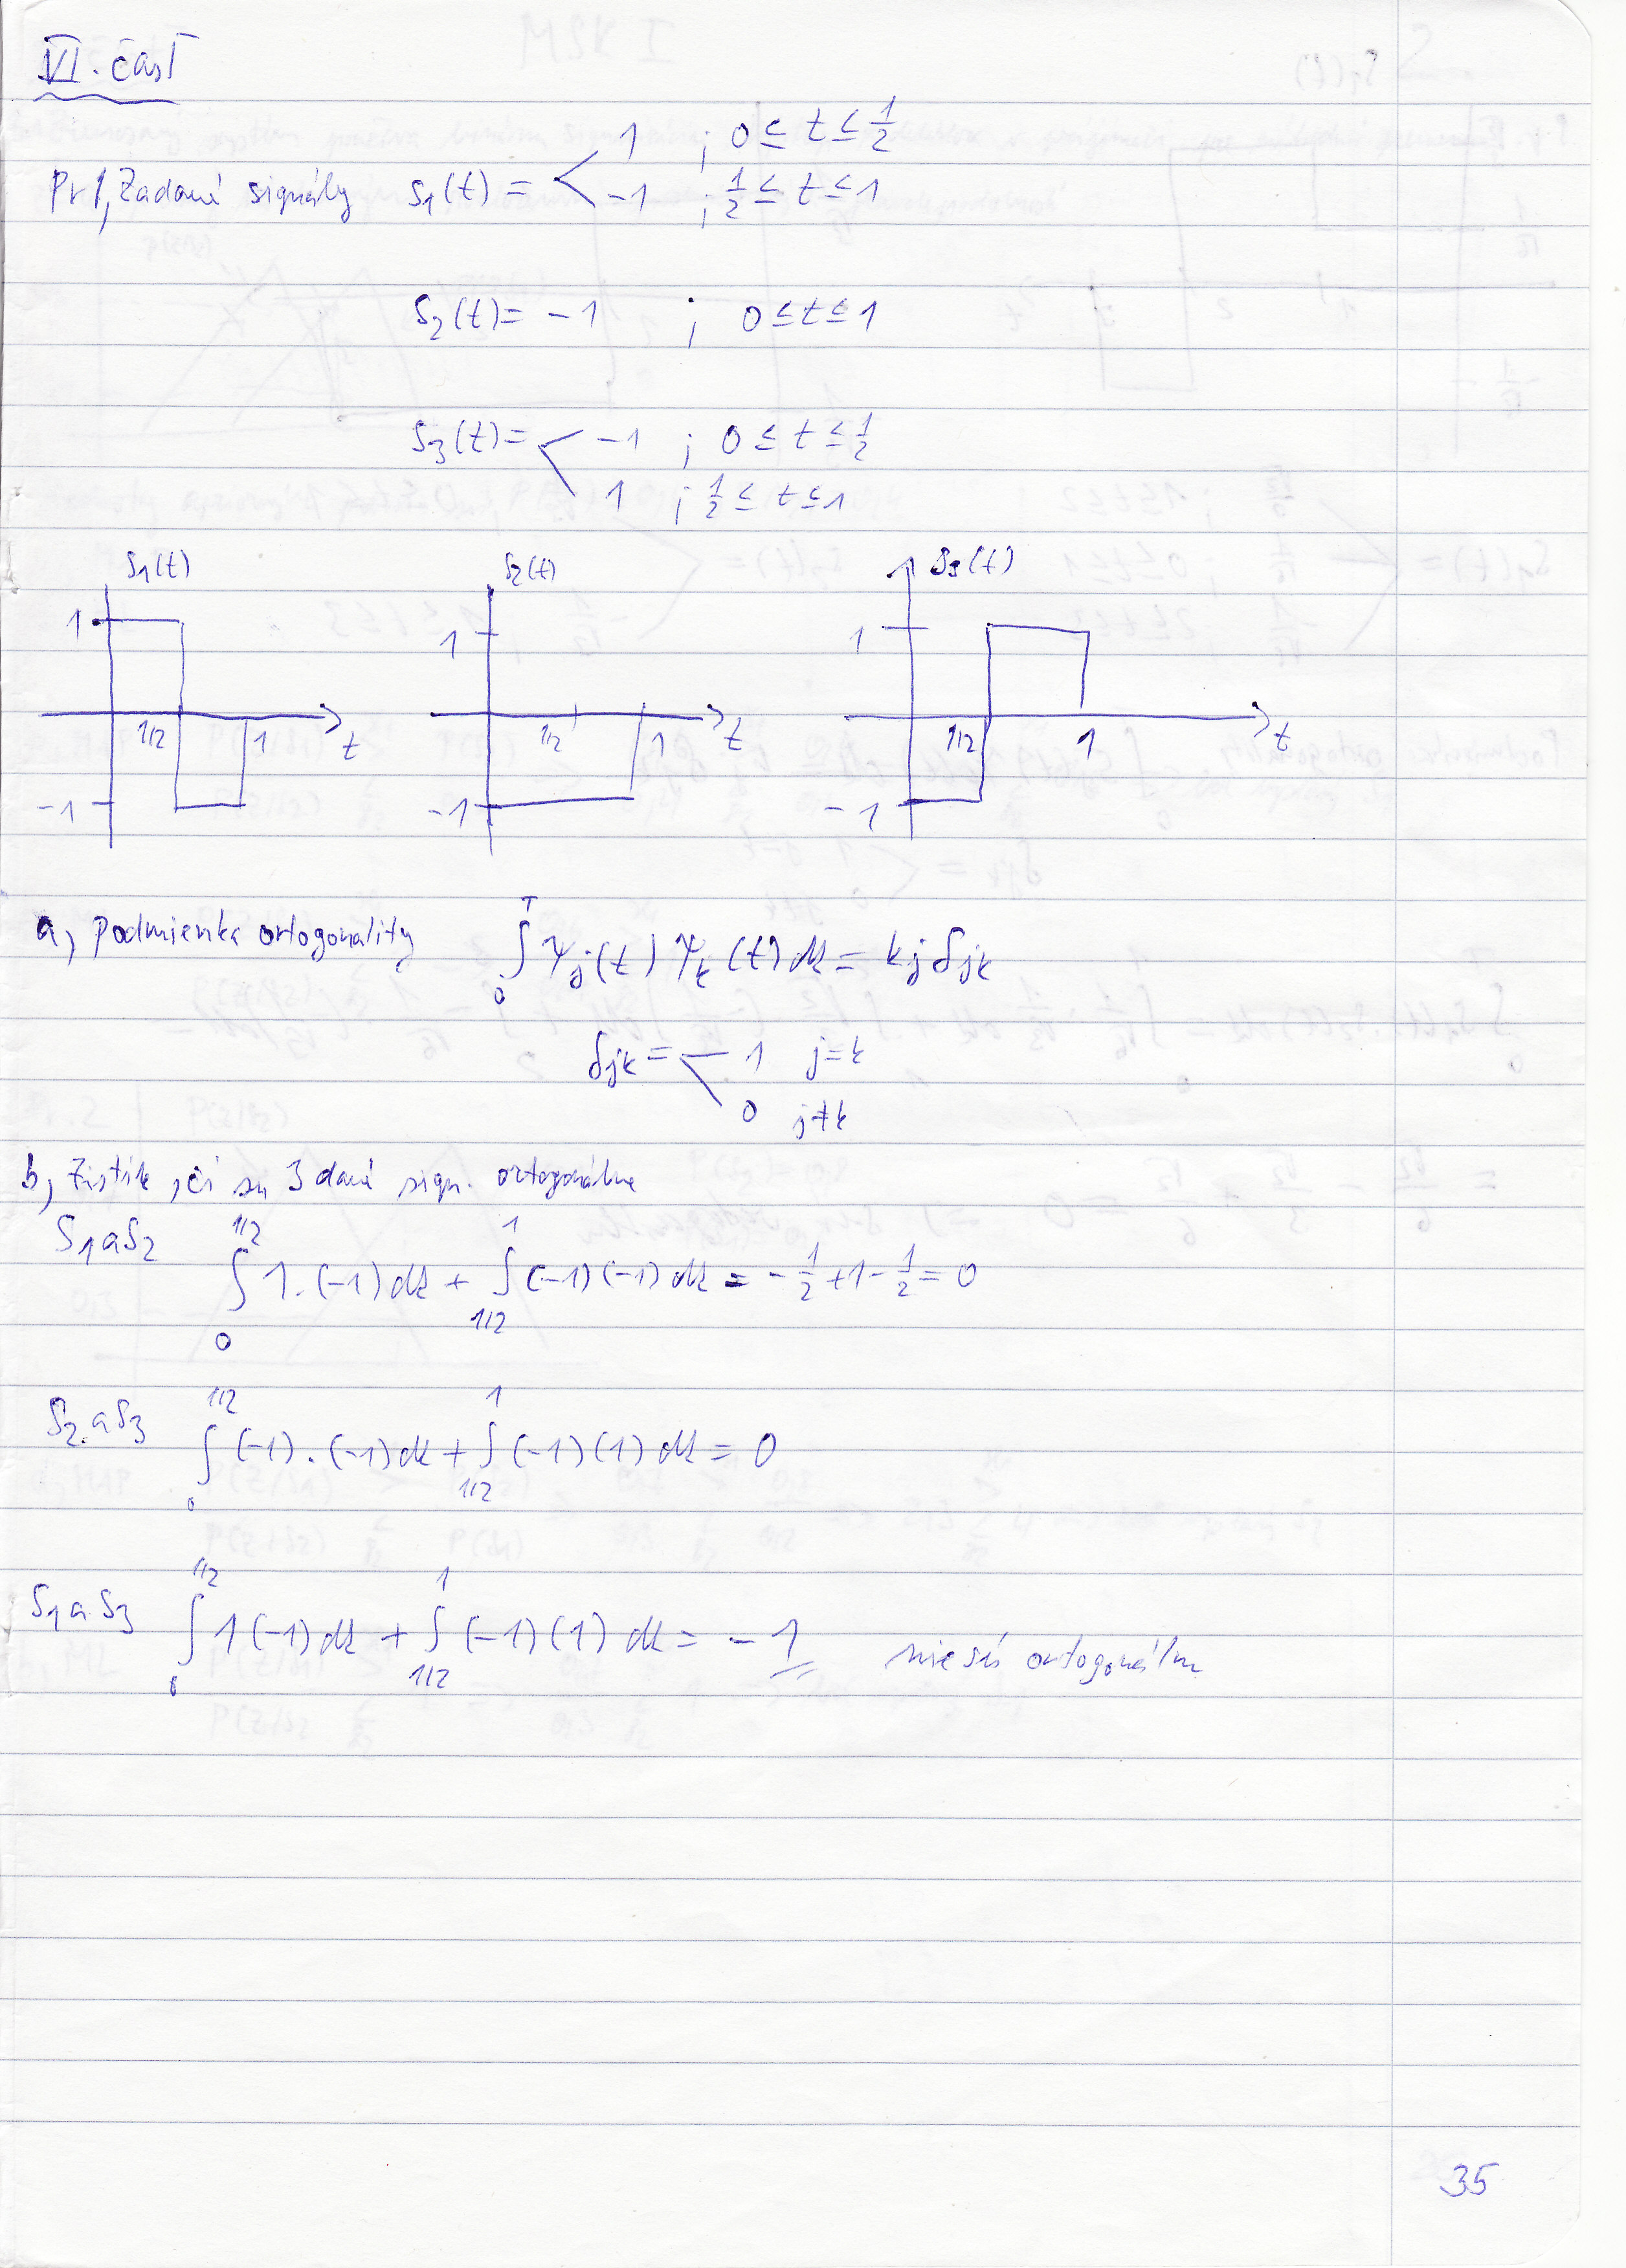 VI. časť
Pr 1, Zadané signály s1(t) = < 1 ; 0 ≤ t ≤ 1/2
-1 ; 1/2 ≤ t ≤ 1
s2(t) = -1 ; 0 ≤ t ≤ 1
s3(t) = < -1 ; 0 ≤ t ≤ 1/2
1 ; 1/2 ≤ t ≤ 1
s1(t) s2(t) s3(t)
1 1 1
1/2 1 t 1/2 1 t 1/2 1 t
-1 -1 -1
a, podmienka ortogonality ∫₀ᵀ ψj(t) ψk(t) dt = kj δjk
δjk = < 1 j=k
0 j≠k
b, Zistite, či sú 3 dané sign. ortogonálne
S1 a S2 ∫₀^1/2 1.(-1)dt + ∫1/2^1 (-1)(-1)dt = -1/2+1-1/2 = 0
S2 a S3 ∫₀^1/2 (-1).(-1)dt + ∫1/2^1 (-1)(1)dt = 0
S1 a S3 ∫₀^1/2 1(-1)dt + ∫1/2^1 (-1)(1)dt = -1 nie sú ortogonálne
35